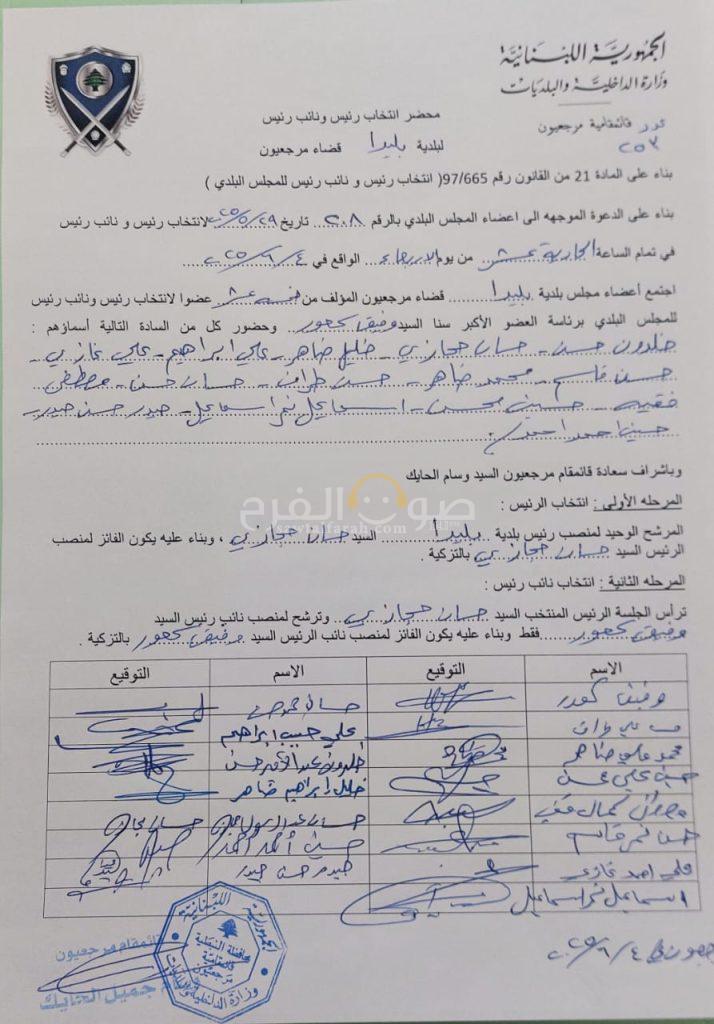 الجمهورية اللبنانية
وزارة الداخلية والبلديات
قائمقامية مرجعيون
٢٥٣
محضر انتخاب رئيس ونائب رئيس
لبلدية بليدا قضاء مرجعيون
بناء على المادة 21 من القانون رقم 97/665( انتخاب رئيس و نائب رئيس للمجلس البلدي )
بناء على الدعوة الموجهه الى اعضاء المجلس البلدي بالرقم ٢٠٨ تاريخ ٢٠٢٥/٥/٢٩ لانتخاب رئيس و نائب رئيس
في تمام الساعة الحادية عشر من يوم الاربعاء الواقع في ٢٠٢٥/٦/٤
اجتمع أعضاء مجلس بلدية بليدا قضاء مرجعيون المؤلف من خمسة عشر عضوا لانتخاب رئيس ونائب رئيس
للمجلس البلدي برئاسة العضو الأكبر سنا السيد وفيق كحور وحضور كل من السادة التالية أسماؤهم :
خلدون حسن - حسان حجازي - خليل ضاهر - علي ابراهيم - علي غازي -
حسن قاسم - محمد ضاهر - حسن طراف - حسان حسن - مصطفى
فقيه - حسين محسن - اسماعيل نمر اسماعيل - حيدر حسن حيدر -
حسين احمد احمد
وباشراف سعادة قائمقام مرجعيون السيد وسام الحايك
صوت الفرح
sawtalfarah.com
المرحله الأولى : انتخاب الرئيس :
المرشح الوحيد لمنصب رئيس بلدية بليدا السيد حسان حجازي ، وبناء عليه يكون الفائز لمنصب
الرئيس السيد حسان حجازي بالتزكية .
المرحله الثانية : انتخاب نائب رئيس :
ترأس الجلسة الرئيس المنتخب السيد حسان حجازي وترشح لمنصب نائب رئيس السيد
وفيق كحور فقط وبناء عليه يكون الفائز لمنصب نائب الرئيس السيد وفيق كحور بالتزكية .
الاسم التوقيع الاسم التوقيع
وفيق كحور
علي حبيب ابراهيم
محمد علي ضاهر
حسين علي محسن خليل ابراهيم ضاهر
حسن نمر قاسم حسين أحمد أحمد
علي احمد غازي حيدر حسن حيدر
اسماعيل نمر اسماعيل
الجمهورية اللبنانية
محافظة النبطية
قائمقامية
مرجعيون
وزارة الداخلية والبلديات
قائمقام مرجعيون
جميل الحايك
٢٠٢٥/٦/٤